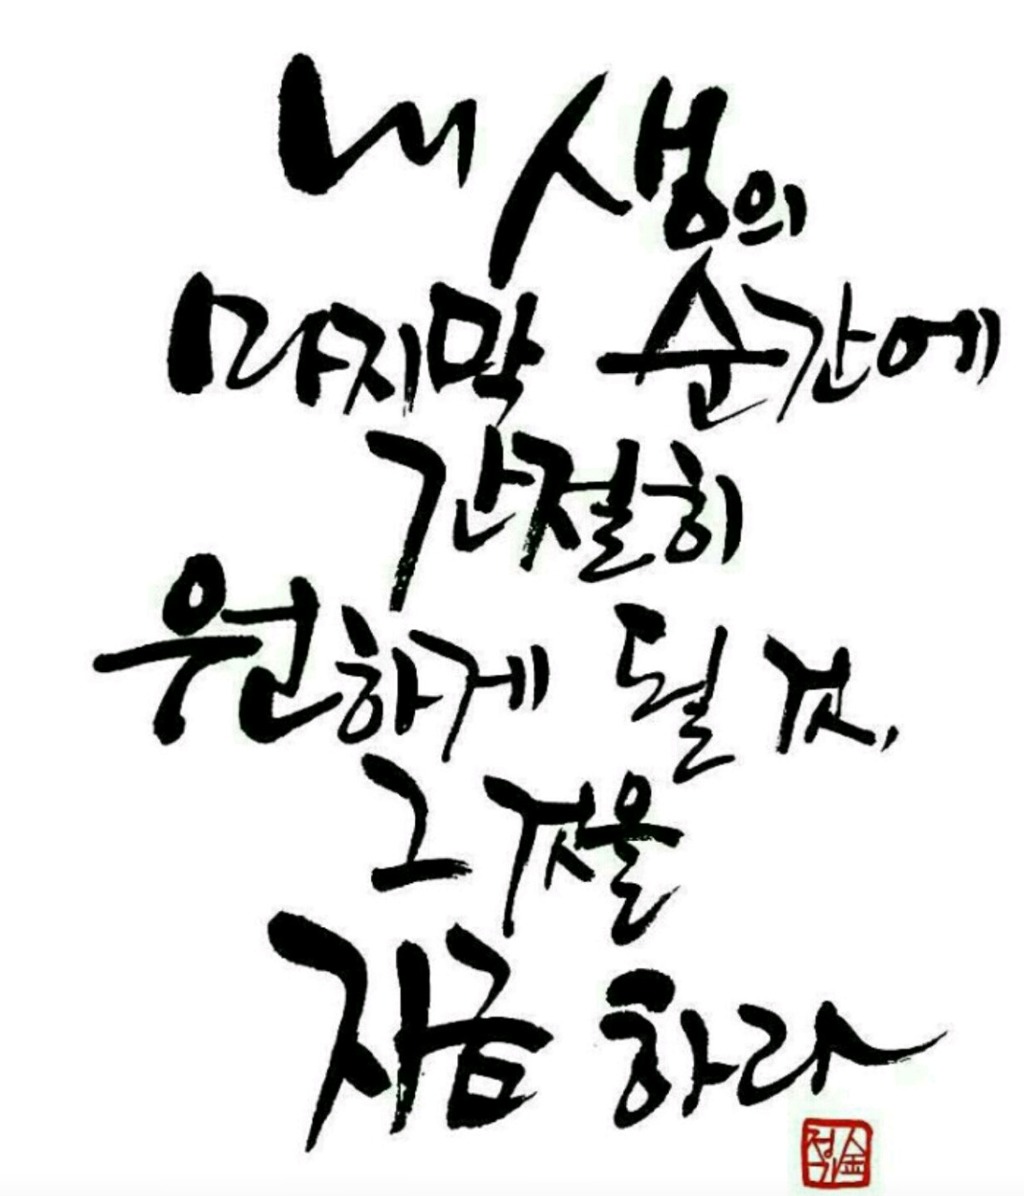 내 생의
마지막 순간에
간절히
원하게 될 것,
그것을
지금 하라